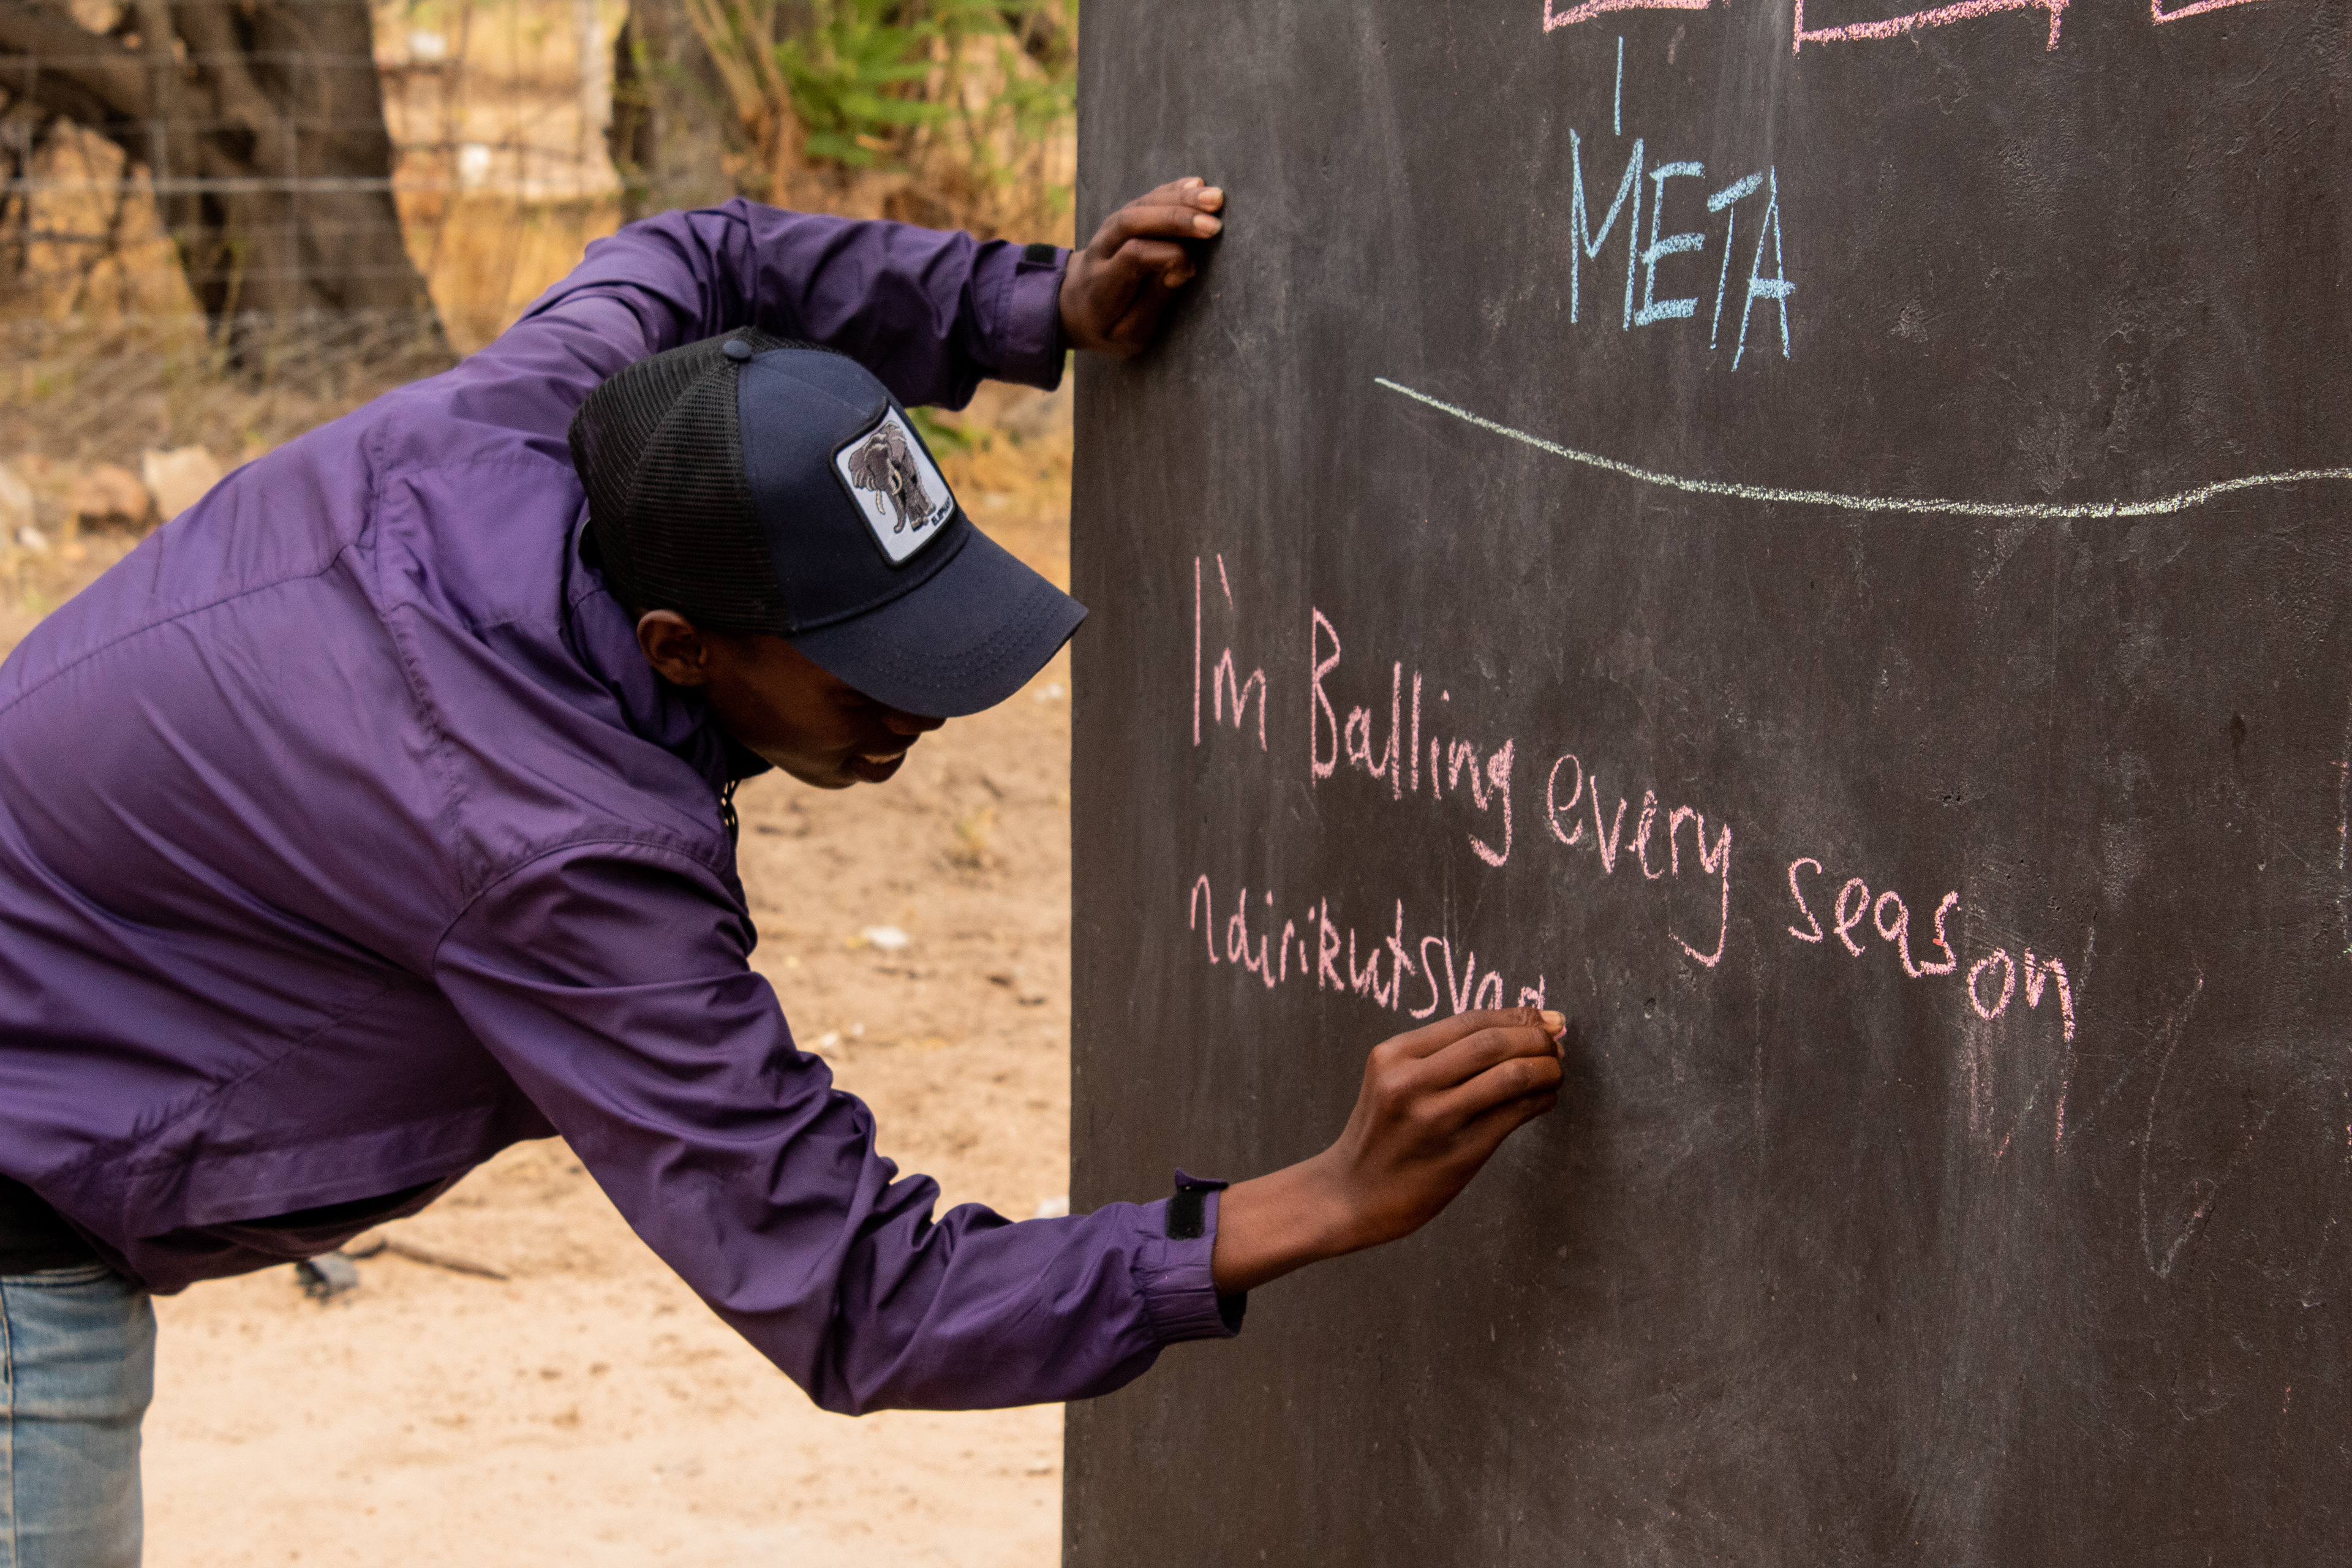 META
I'm Balling every season
ndirikutsvag